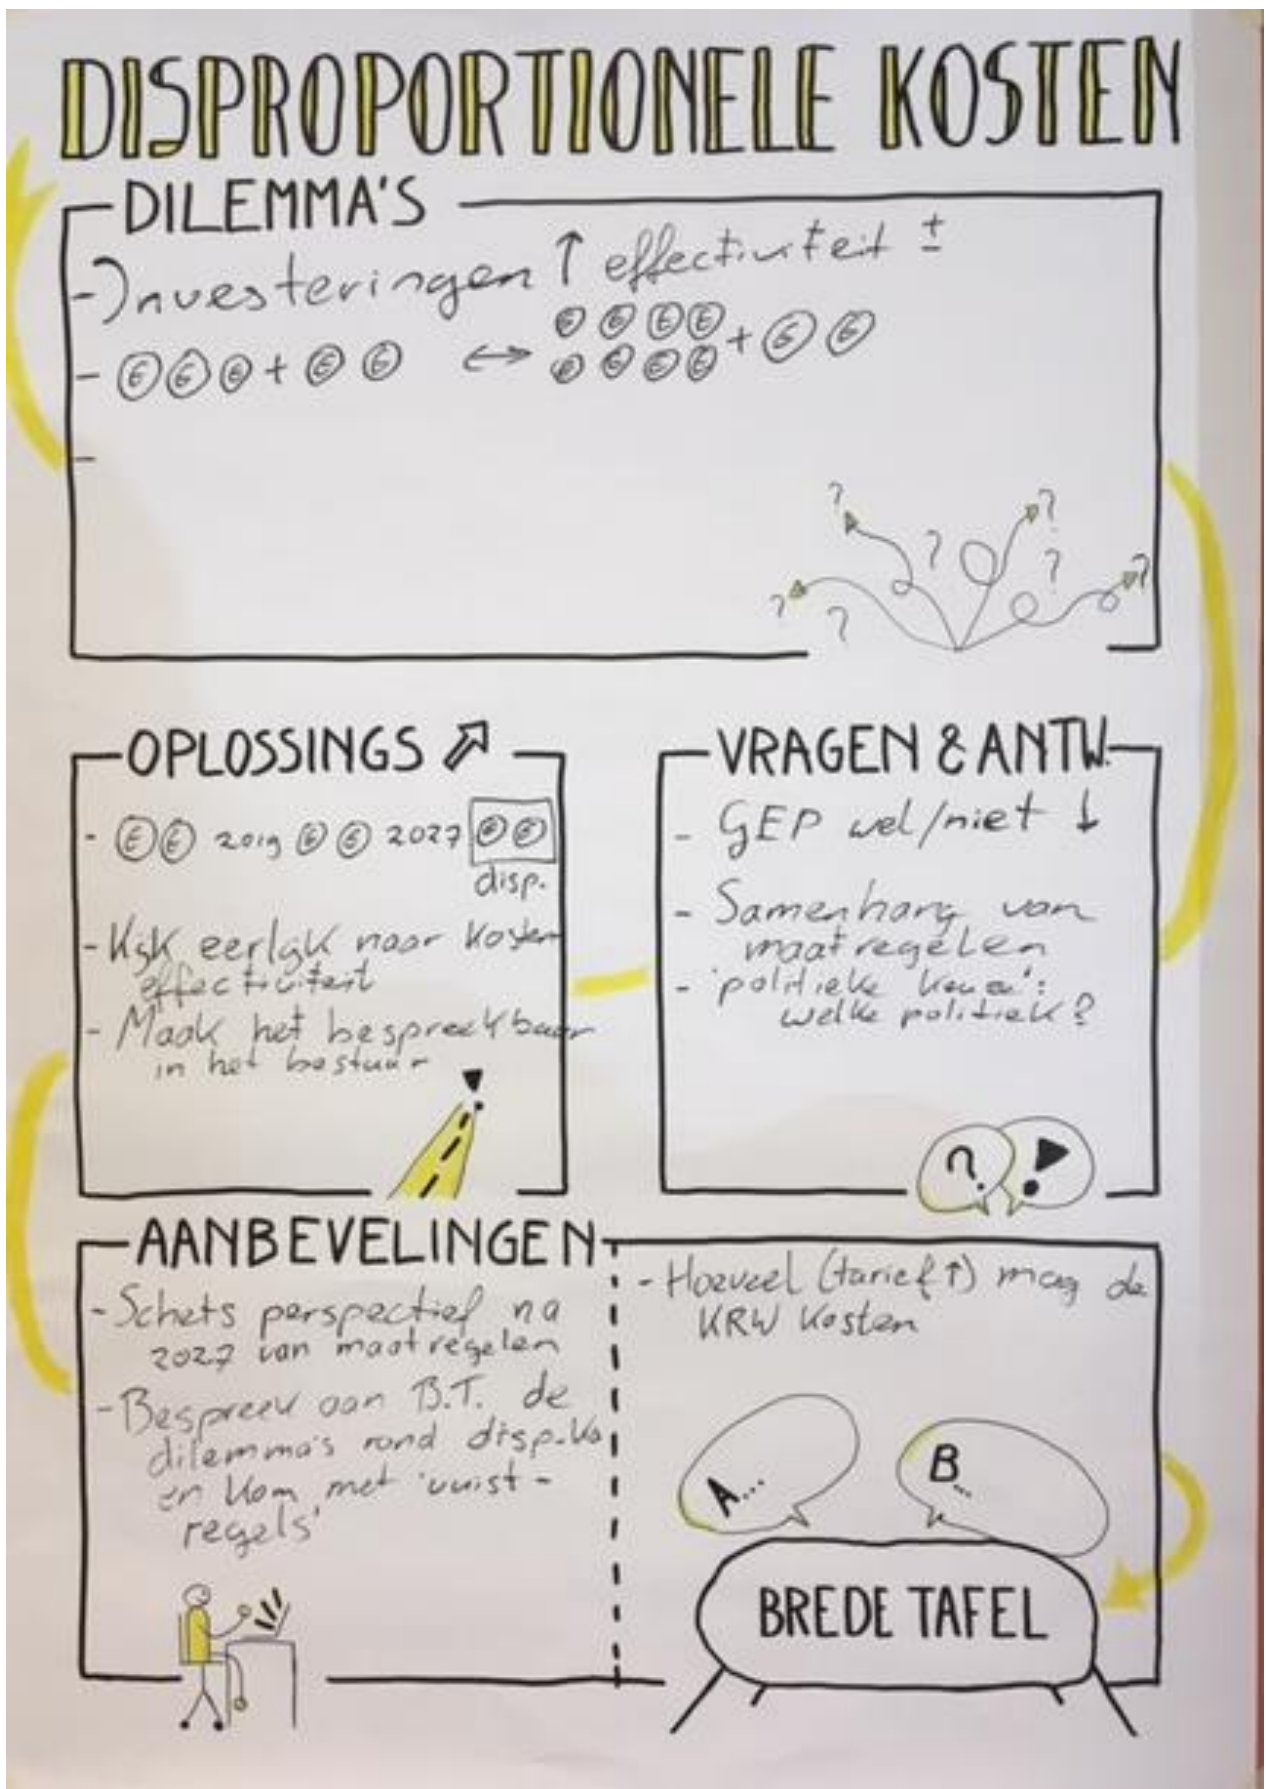 DISPROPORTIONELE KOSTEN
DILEMMA'S
- Investeringen ↑ effectiviteit ±
- € € € + € € ↔ € € € € € € € € + € €
-
? ? ? ? ? ? ?
OPLOSSINGS ⇗
- € € 2019 € € 2027 € €
disp.
- Kijk eerlijk naar kosten
effectiviteit
- Maak het bespreekbaar
in het bestuur
!
VRAGEN & ANTW.
- GEP wel/niet ↓
- Samenhang van
maatregelen
- 'politieke keuze':
welke politiek?
? !
AANBEVELINGEN
- Schets perspectief na
2027 van maatregelen
- Bespreek aan B.T. de
dilemma's rond disp. ko
en kom met 'vuist-
regels'
- Hoeveel (tarief↑) mag de
KRW kosten
A...
B...
BREDE TAFEL